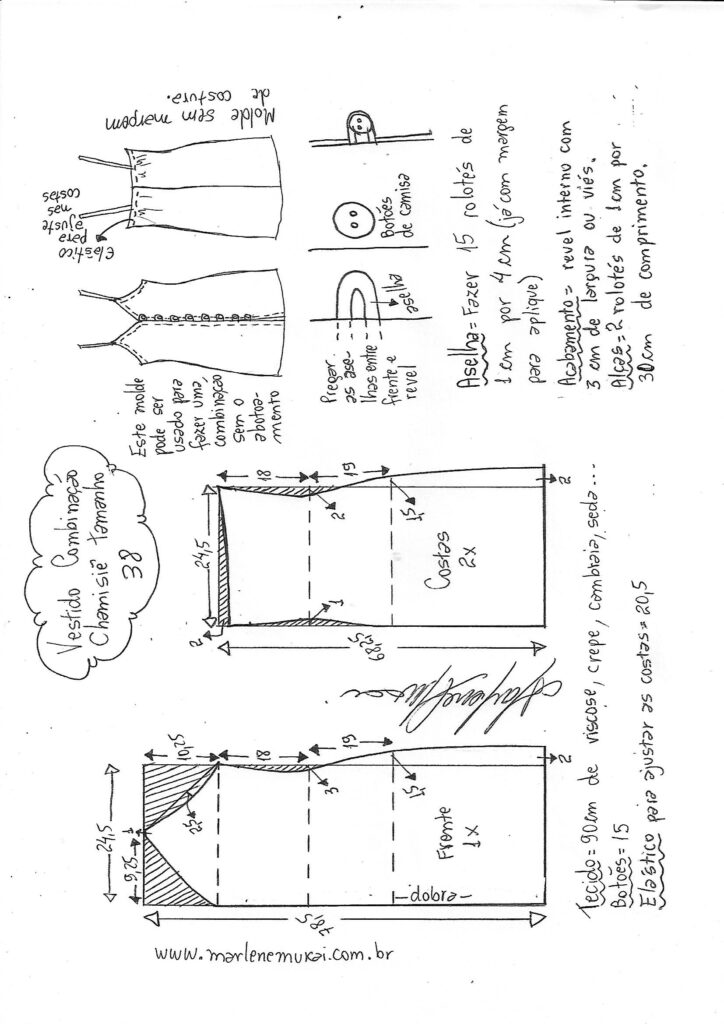 Vestido Combinação
Chamisiê Tamanho
38
Este molde
pode ser
usado para
fazer uma
combinação
sem o
abotoa-
mento
Elástico
para
ajuste
nas
costas
Molde sem margem
de costura.
Pregar
as ase-
lhas entre
frente e
revel
aselha
Botões
de camisa
Aselha= Fazer 15 rolotés de
1cm por 4cm (já com margem
para aplique)
Acabamento= revel interno com
3 cm de largura ou viés.
Alças= 2 rolotés de 1cm por
30cm de comprimento.
24,5
9,25
10,25
18
15
2,5
3
1,5
2
78,5
Frente
1x
—dobra—
24,5
18
15
2
2
1
1,5
2
68,25
Costas
2x
www.marlenemukai.com.br
Tecido= 90cm de viscose, crepe, cambraia, seda...
Botões= 15
Elástico para ajustar as costas= 20,5